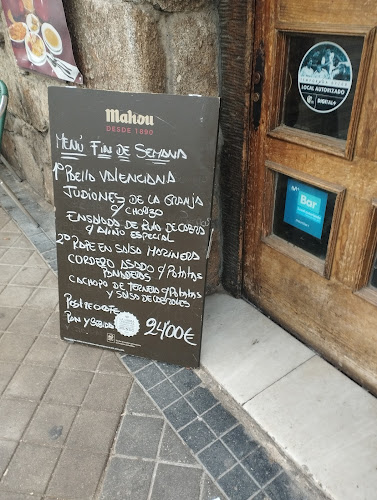 Mahou
DESDE 1890
MENÚ FIN DE SEMANA
1º PAELLA VALENCIANA
JUDIONES DE LA GRANJA
C/ CHORIZO
ENSALADA DE RULO DE CABRA
C/ ALIÑO ESPECIAL
2º RAPE EN SALSA MARINERA
CORDERO ASADO C/ PATATAS
PANADERAS
CACHOPO DE TERNERA C/ PATATAS
Y SALSA DE CABRALES
POSTRE O CAFÉ
PAN Y BEBIDA
24'00€
LOCAL AUTORIZADO
Bar